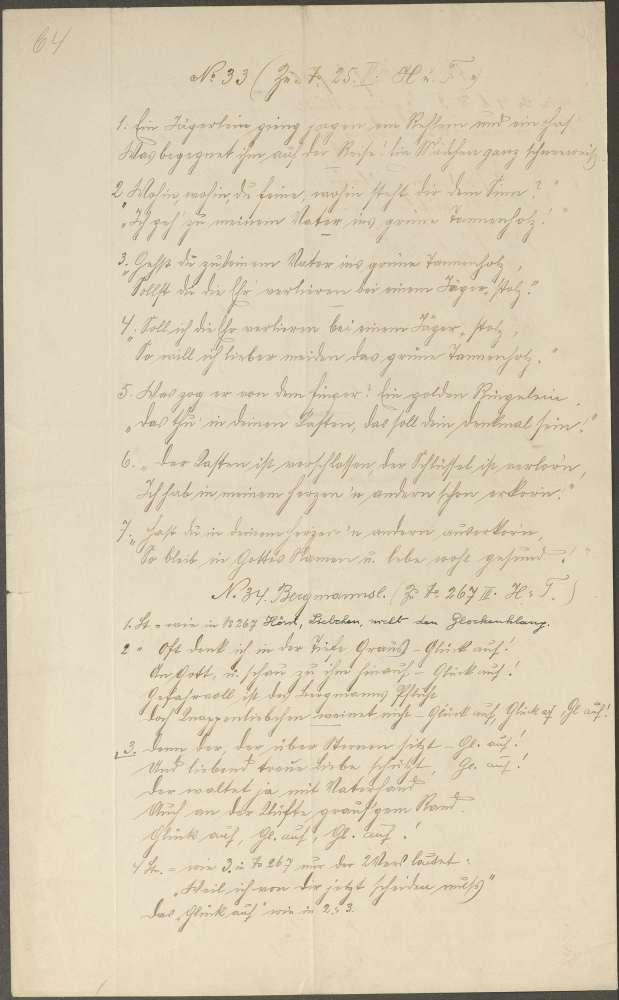 64
No 33 (Zu No 25. II. H u. T.)
1. Ein Jägerlein gieng jagen ein Rehlein und ein Has
Was begegnet ihm auf der Reise? Ein Mädchen ganz schneeweiß.
2. "Wohin, wohin, du feine, wohin steht dir dein Sinn?"
"Ich geh' zu meinem Vater ins grüne Tannenholz!"
3. "Gehst du zu deinem Vater ins grüne Tannenholz,
Sollst du die Ehr' verlieren bei einem Jäger stolz."
4. "Soll ich die Ehr verlieren bei einem Jäger stolz,
So will ich lieber meiden das grüne Tannenholz."
5. Was zog er von dem Finger? Ein golden Ringelein.
"Das thu' in deinen Kasten, das soll dein Denkmal sein!"
6. "Der Kasten ist verschlossen, der Schlüssel ist verlor'n,
Ich hab in meinem Herzen 'n andern schon erkorn."
7. "Hast du in deinem Herzen 'n andern auserkorn,
So bleib in Gottes Namen u. lebe wohl gesund –!"
No. 34. Bergmannsl. (Zu No 267 II. H. T.)
1. St = wie in No 267 Hörst, Liebchen, willt den Glockenklang.
2 " Oft denk ich in der Tiefe Graus – Glück auf!
An Gott, u. schau zu ihm hinauf – Glück auf!
Gefahrvoll ist des Bergmanns Pflicht
Doch Knappenliebchen weinet nicht – Glück auf, Glück auf, Gl auf!
3. Denn der, der über Sternen sitzt – Gl. auf!
Und liebend treue Liebe schützt, Gl. auf!
Der waltet ja mit Vaterhand
Auch an der Klüfte graus'gem Rand.
Glück auf, Gl. auf, Gl. auf!
4 St. = wie 3. in No 267 nur der 2 Vers lautet:
"Weil ich von dir jetzt scheiden muß"
Das "Glück auf" wie in 2. 3.